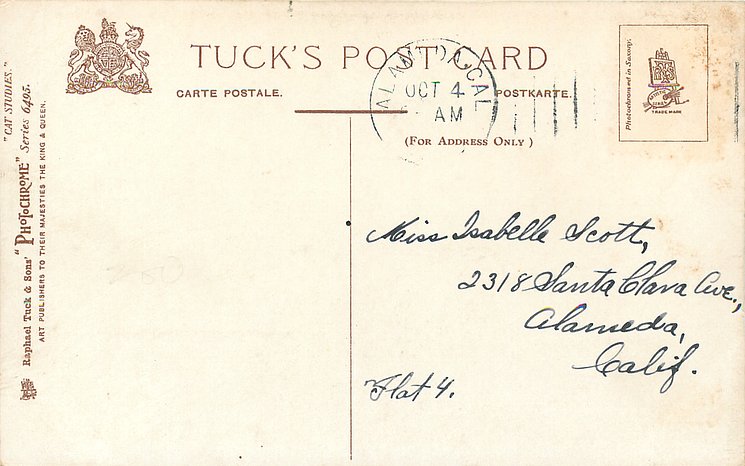 TUCK'S POST CARD
CARTE POSTALE.
POSTKARTE.
(FOR ADDRESS ONLY)
ALAMEDA, CAL
OCT 4
AM
Photochromed in Saxony.
TRADE MARK
"CAT STUDIES."
Raphael Tuck & Sons' "PHOTOCHROME" Series 6495.
ART PUBLISHERS TO THEIR MAJESTIES THE KING & QUEEN.
Miss Isabelle Scott,
2318 Santa Clara Ave.,
Alameda,
Calif.
Flat 4.